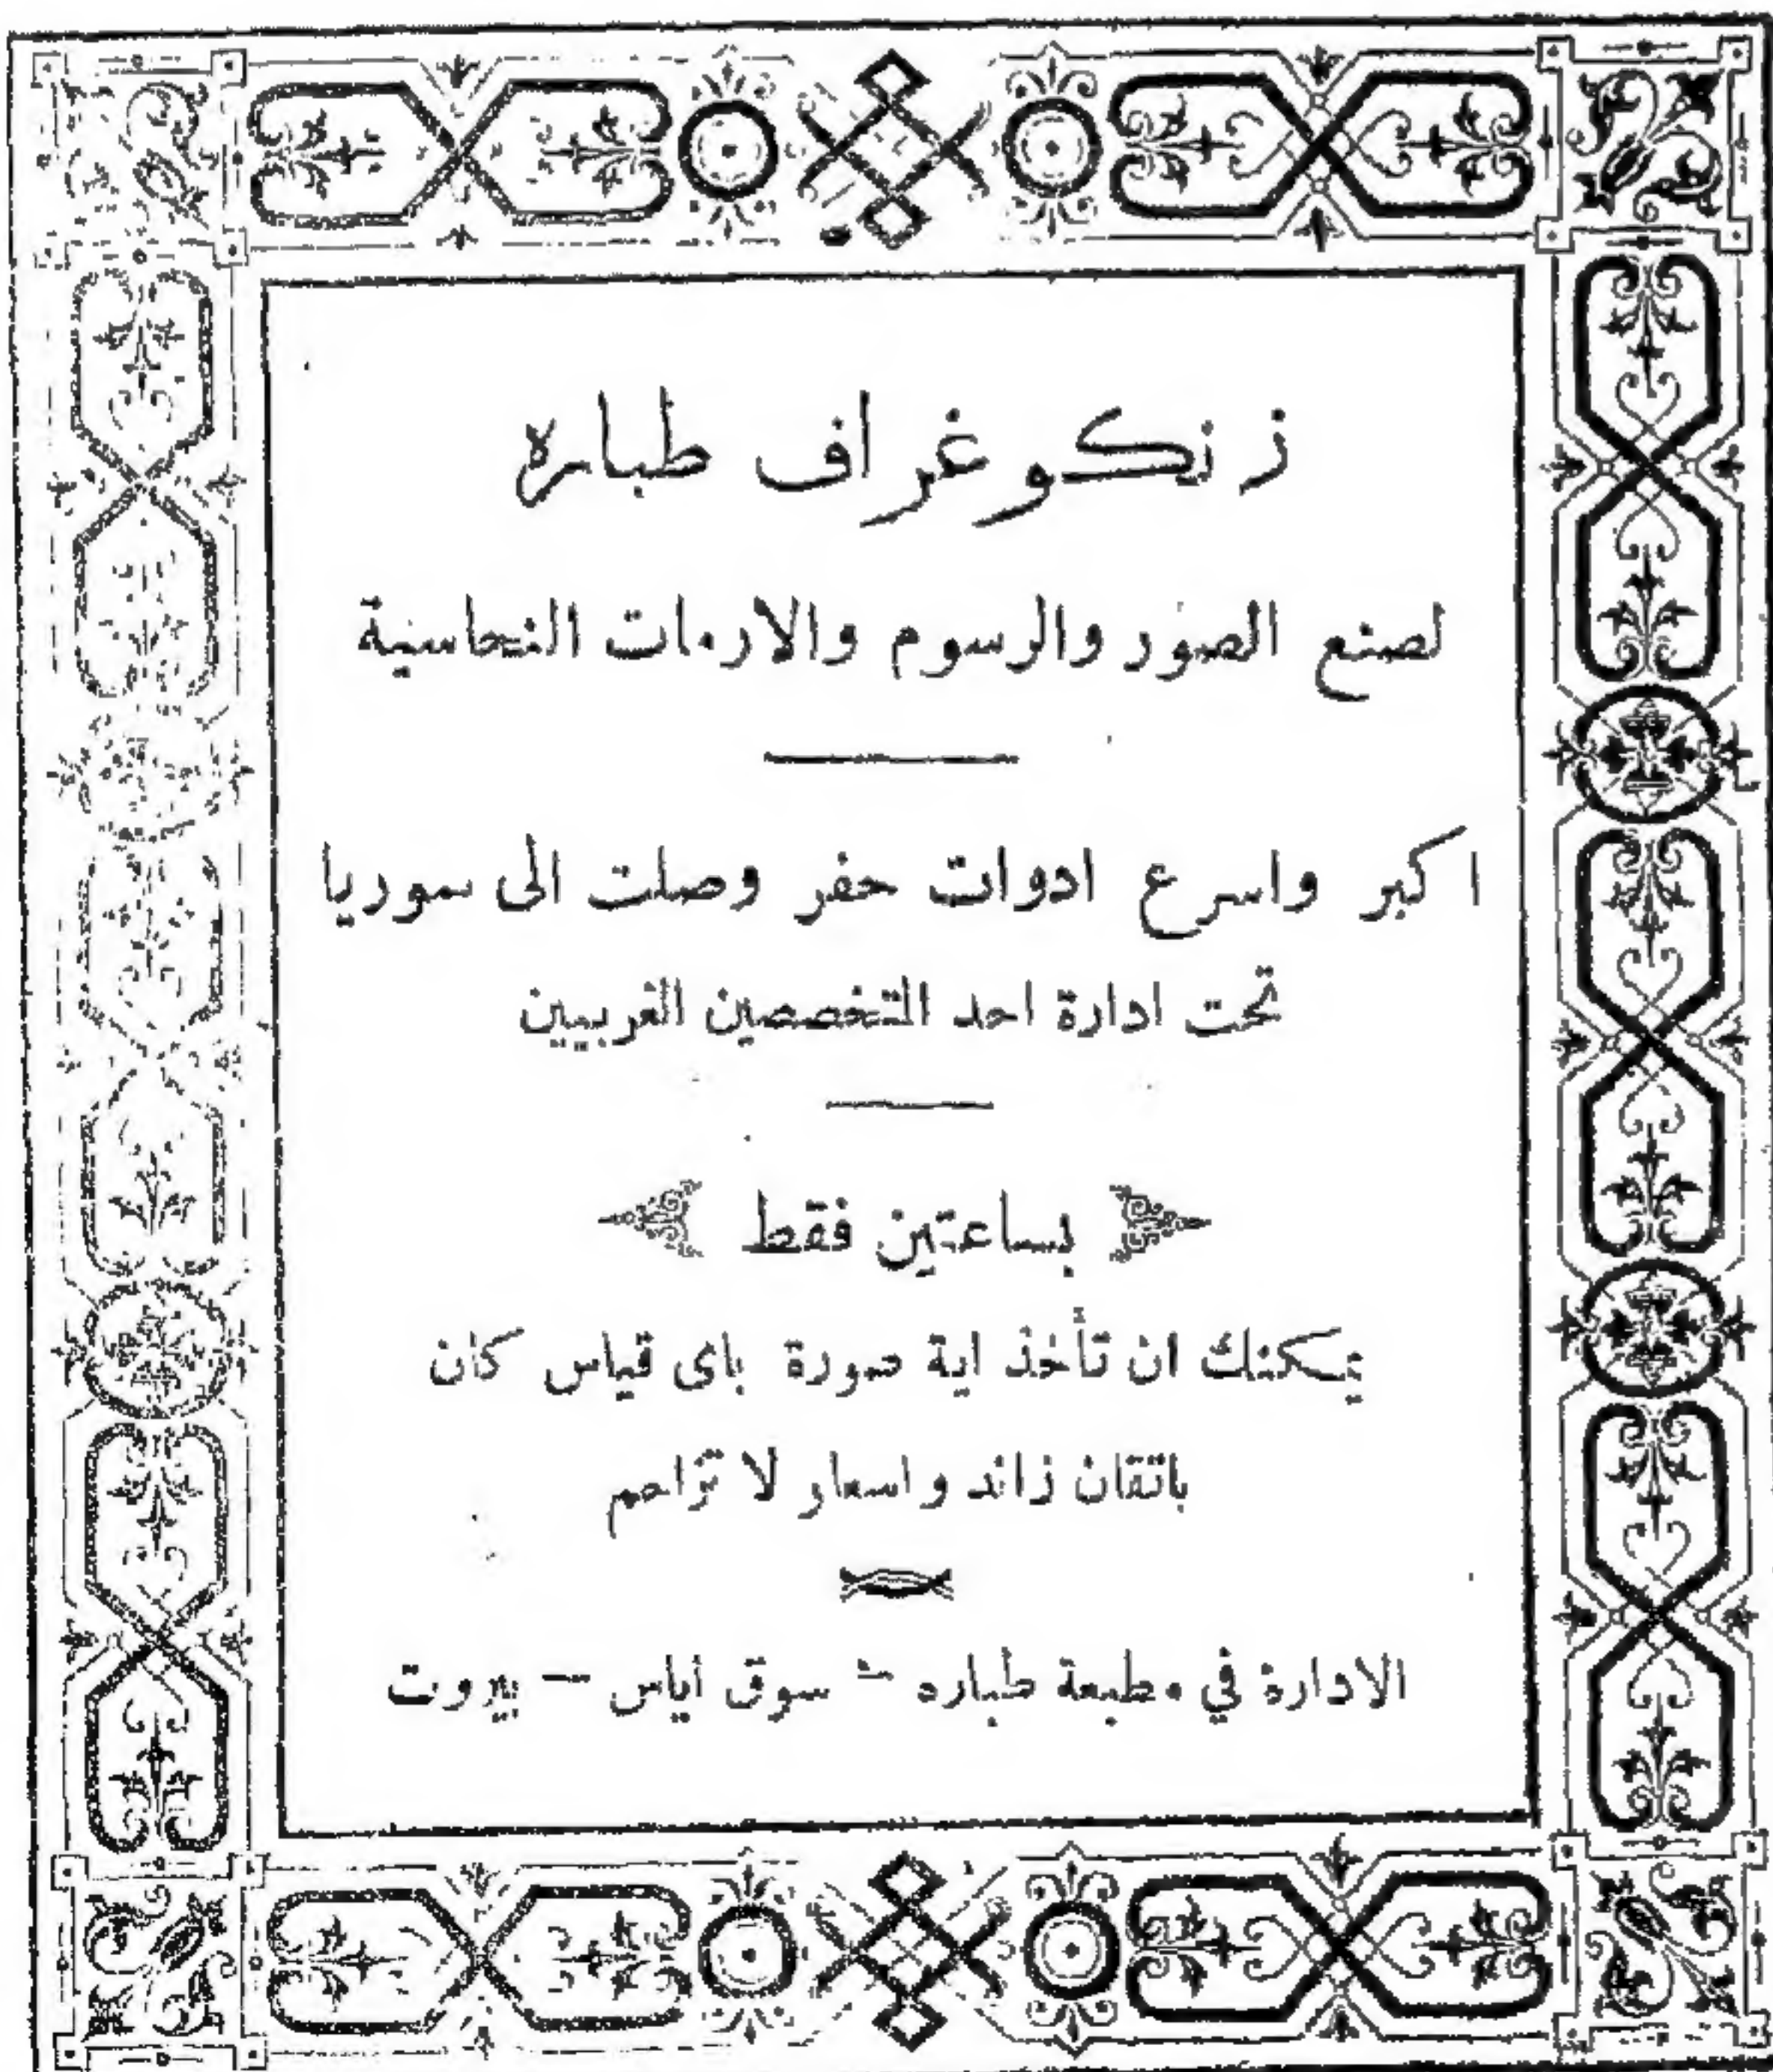 زنكوغراف طباره
لصنع الصور والرسوم والارمات النحاسية
اكبر واسرع ادوات حفر وصلت الى سوريا
تحت ادارة احد المتخصصين الغربيين
بساعتين فقط
يمكنك ان تأخذ اية صورة باى قياس كان
باتقان زائد واسعار لا تزاحم
الادارة في مطبعة طباره – سوق أياس – بيروت